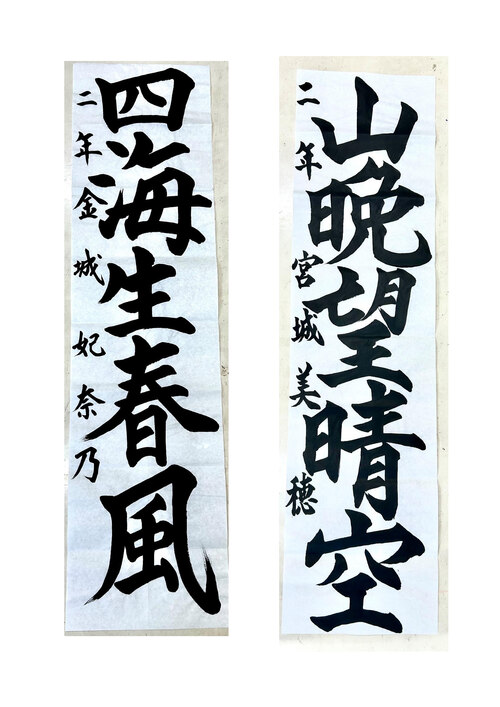 山晩望晴空
二年 宮城美穂
四海生春風
二年 金城妃奈乃